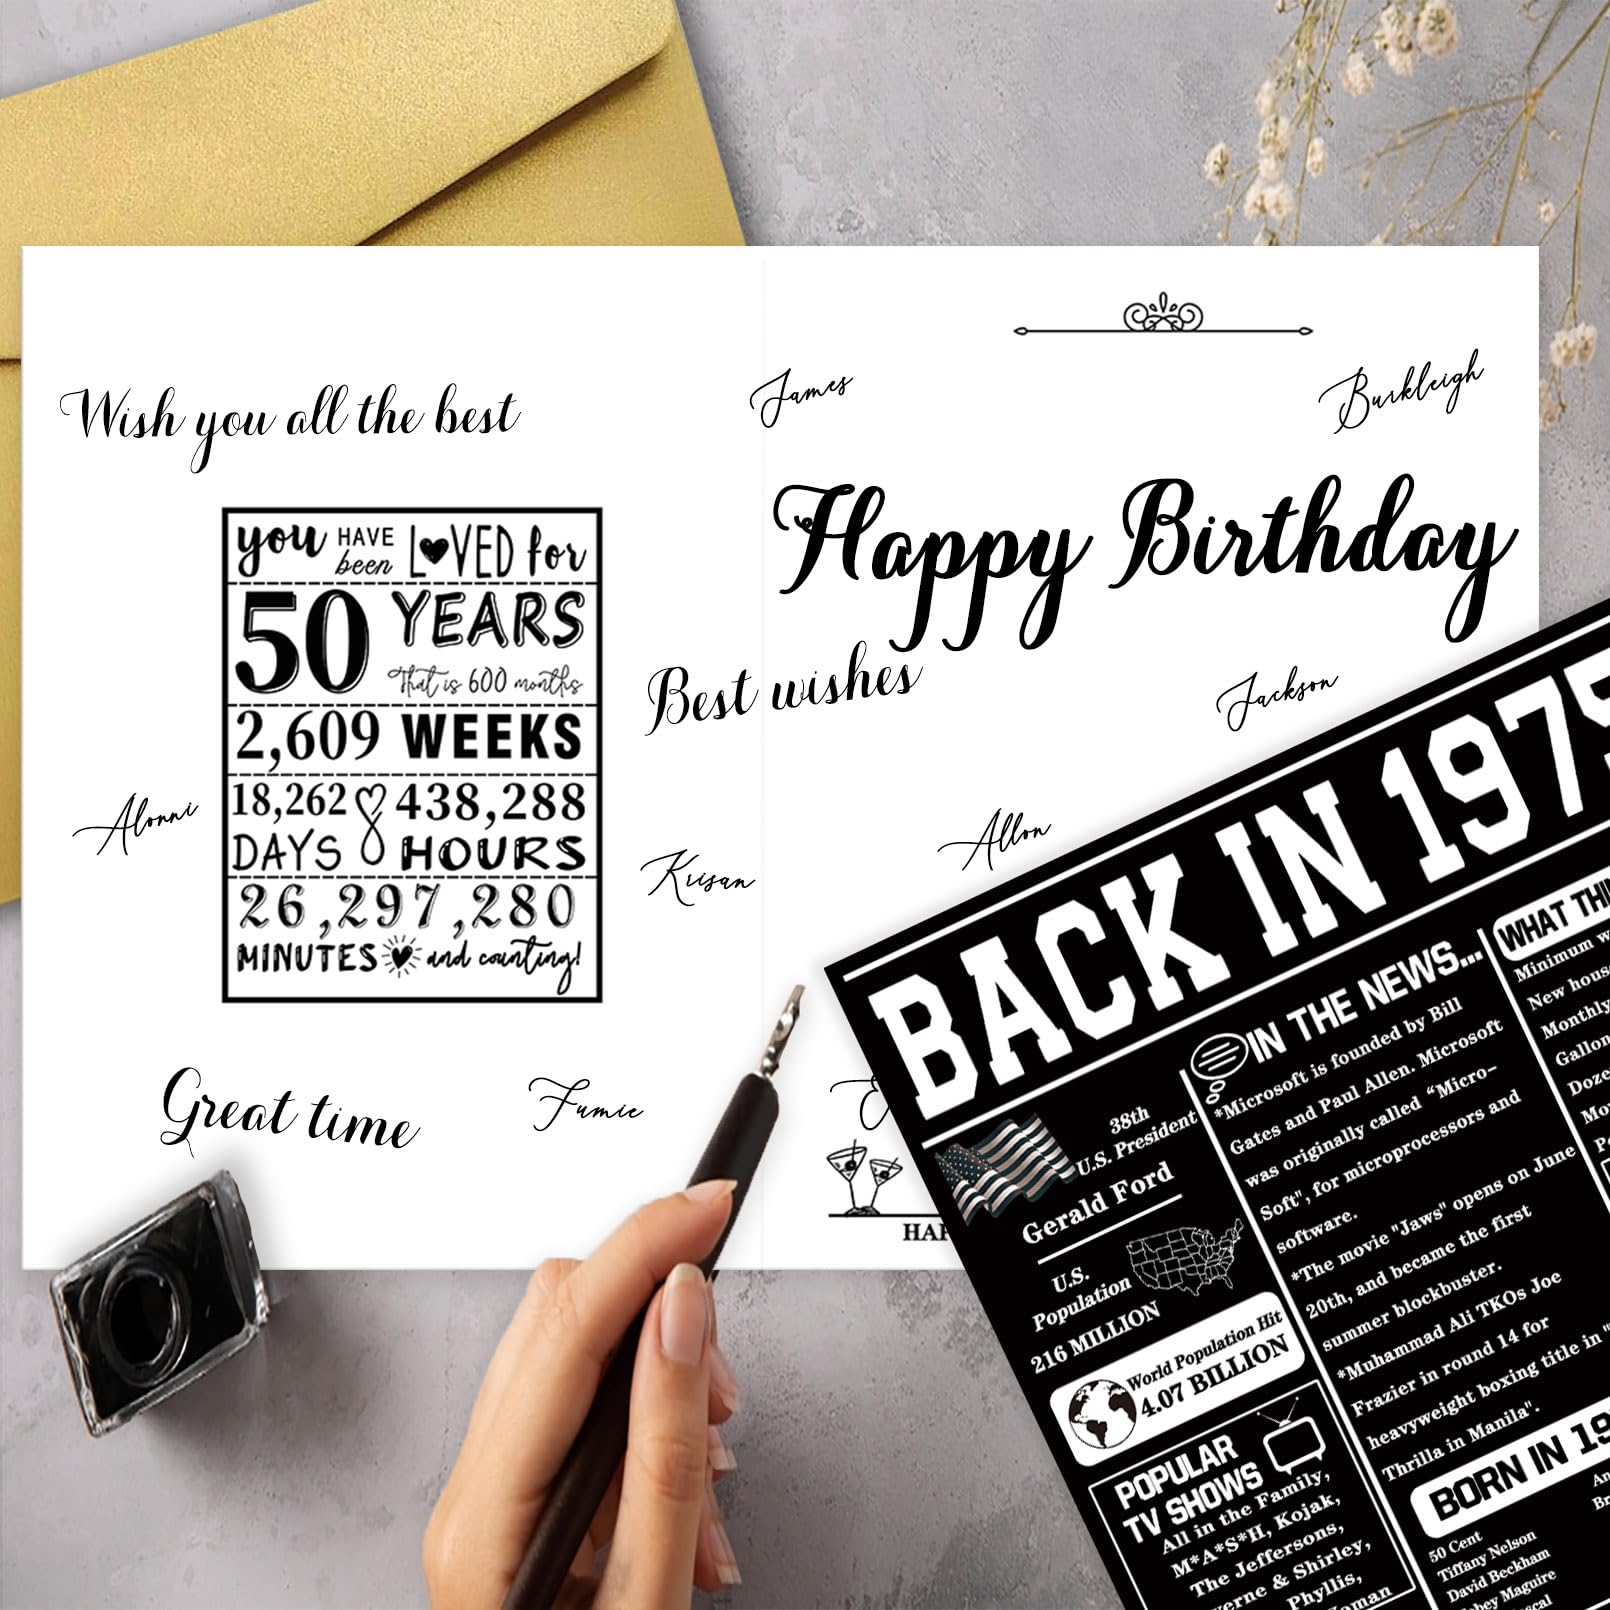 Wish you all the best
James
Burkleigh
Happy Birthday
you HAVE been LOVED for
50 YEARS
That is 600 months
2,609 WEEKS
18,262 DAYS
438,288 HOURS
26,297,280
MINUTES and counting!
Best wishes
Jackson
Alonni
Krisan
Allon
Great time
Fumie
BACK IN 1975
38th
U.S. President
Gerald Ford
U.S.
Population
216 MILLION
World Population Hit
4.07 BILLION
POPULAR
TV SHOWS
All in the Family,
M*A*S*H, Kojak,
The Jeffersons,
& Shirley,
Phyllis,
IN THE NEWS...
*Microsoft is founded by Bill
Gates and Paul Allen. Microsoft
was originally called "Micro-
Soft", for microprocessors and
software.
*The movie "Jaws" opens on June
20th, and became the first
summer blockbuster.
*Muhammad Ali TKOs Joe
Frazier in round 14 for
heavyweight boxing title in "
Thrilla in Manila".
WHAT
Minimum
New
Monthly
BORN IN
50 Cent
Tiffany Nelson
David Beckham
Maguire